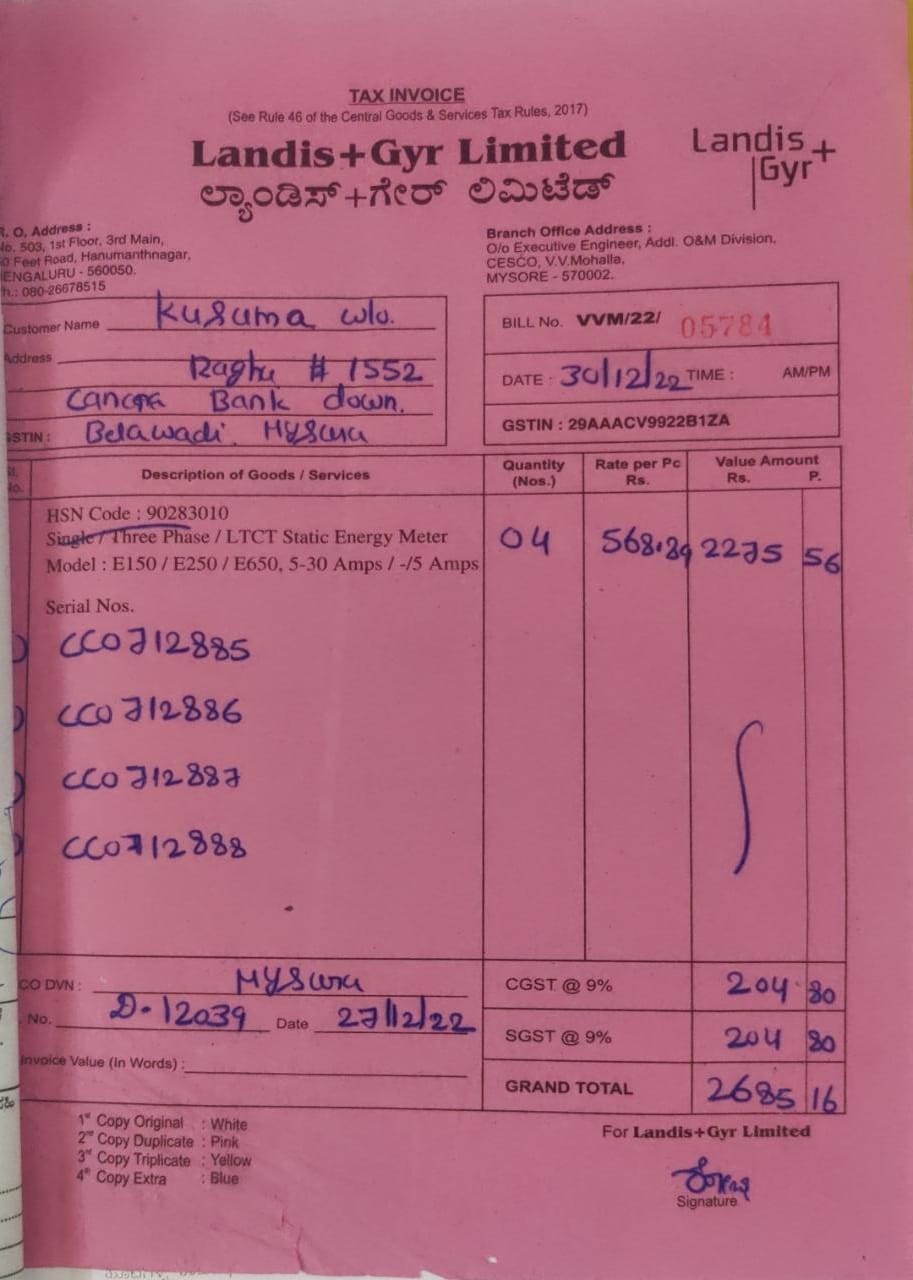 TAX INVOICE
(See Rule 46 of the Central Goods & Services Tax Rules, 2017)
Landis+Gyr Limited
ಲ್ಯಾಂಡಿಸ್+ಗೇರ್ ಲಿಮಿಟೆಡ್
Landis
Gyr+
R. O. Address :
No. 503, 1st Floor, 3rd Main,
0 Feet Road, Hanumanthnagar,
ENGALURU - 560050.
h.: 080-26678515
Branch Office Address :
O/o Executive Engineer, Addl. O&M Division,
CESCO, V.V.Mohalla,
MYSORE - 570002.
Customer Name Kusuma w/o.
Address Raghu # 1552
Canara Bank down.
GSTIN : Belawadi. Mysuru
BILL No. VVM/22/ 05784
DATE : 30/12/22 TIME : AM/PM
GSTIN : 29AAACV9922B1ZA
Sl. No. Description of Goods / Services Quantity (Nos.) Rate per Pc Rs. Value Amount Rs. P.
HSN Code : 90283010
Single / Three Phase / LTCT Static Energy Meter 04 568.89 2275 56
Model : E150 / E250 / E650, 5-30 Amps / -/5 Amps
Serial Nos.
CC0712885
CC0712886
CC0712887
CC0712888
CO DVN : Mysuru
. No. D-12039 Date 27/12/22
Invoice Value (In Words) :
CGST @ 9% 204 80
SGST @ 9% 204 80
GRAND TOTAL 2685 16
1st Copy Original : White
2nd Copy Duplicate : Pink
3rd Copy Triplicate : Yellow
4th Copy Extra : Blue
For Landis+Gyr Limited
Signature